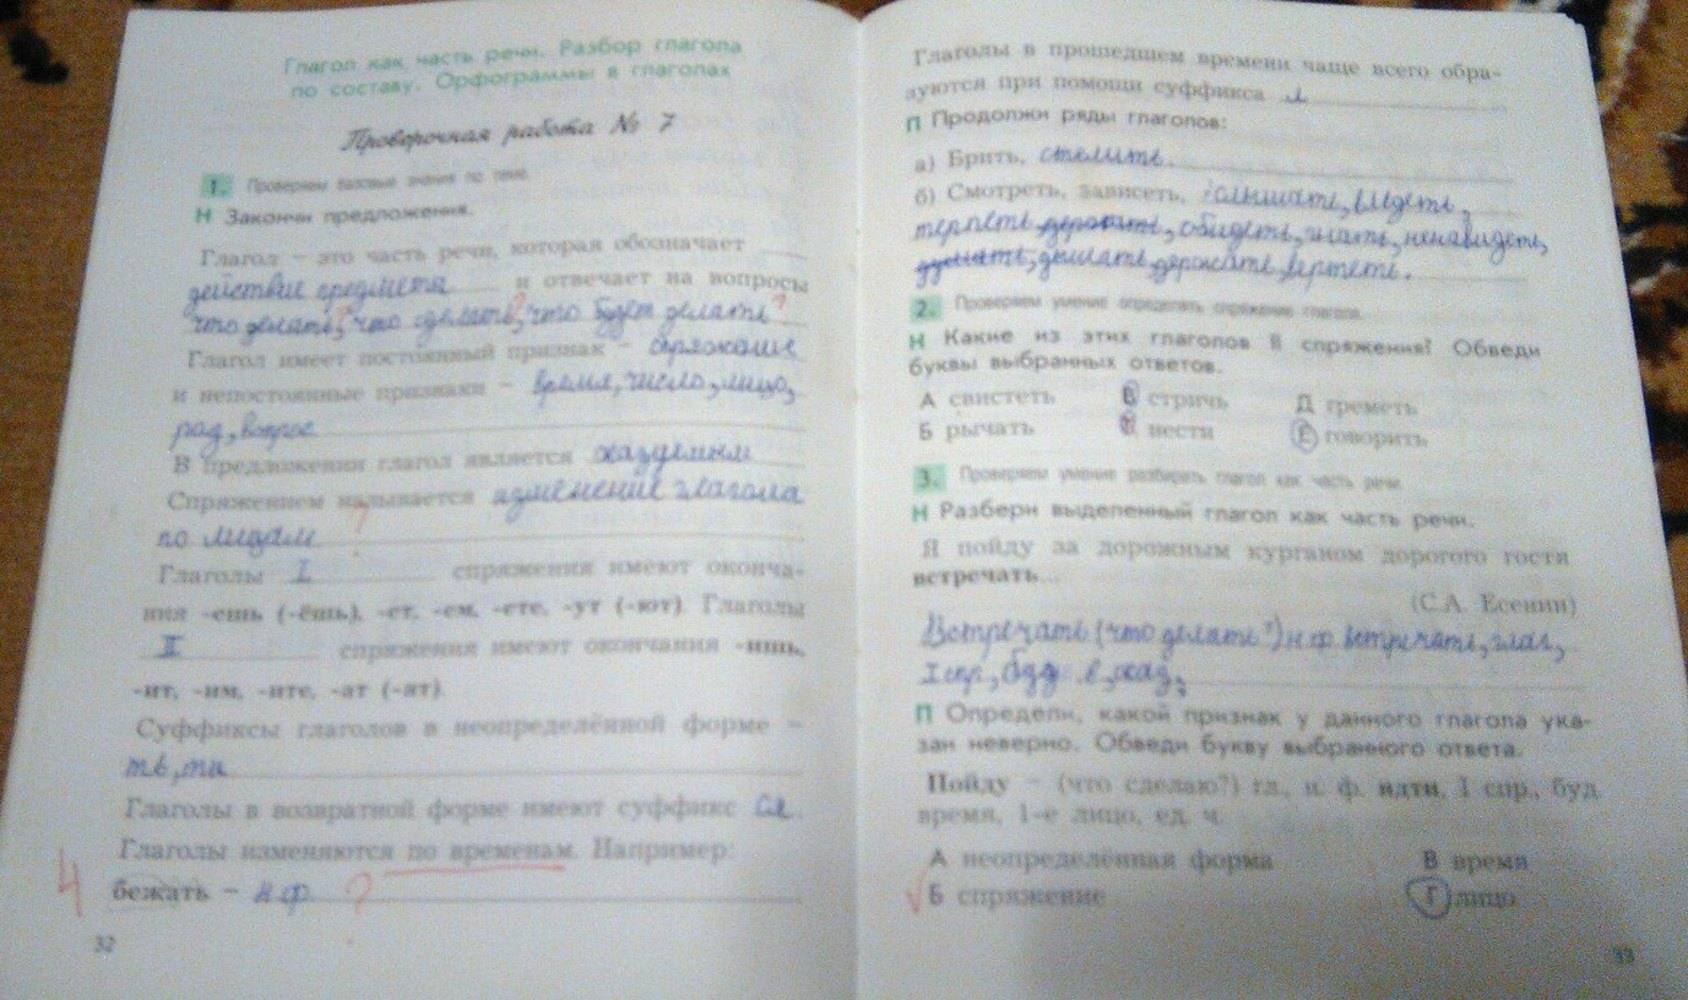 Глагол как часть речи. Разбор глагола
по составу. Орфограммы в глаголах
Проверочная работа № 7
1. Проверяем базовые знания по теме.
Н Закончи предложения.
Глагол – это часть речи, которая обозначает
действие предмета и отвечает на вопросы
что делать?, что сделать?, что будет делать?
Глагол имеет постоянный признак – спряжение
и непостоянные признаки – время, число, лицо,
род, вопрос
В предложении глагол является сказуемым
Спряжением называется изменение глагола
по лицам ?
Глаголы I спряжения имеют оконча-
ния -ешь (-ёшь), -ет, -ем, -ете, -ут (-ют). Глаголы
II спряжения имеют окончания -ишь,
-ит, -им, -ите, -ат (-ят).
Суффиксы глаголов в неопределённой форме –
ть, ти
Глаголы в возвратной форме имеют суффикс ся.
Глаголы изменяются по временам. Например:
4 бежать – н.ф. ?
32
Глаголы в прошедшем времени чаще всего обра-
зуются при помощи суффикса л
П Продолжи ряды глаголов:
а) Брить, стелить.
б) Смотреть, зависеть, слышать,
терпеть, держать, обидеть, гнать, ненавидеть,
дышать, держать, вертеть.
2. Проверяем умение определять спряжение глагола.
Н Какие из этих глаголов II спряжения? Обведи
буквы выбранных ответов.
А свистеть В стричь Д греметь
Б рычать Г нести Е говорить
3. Проверяем умение разбирать глагол как часть речи.
Н Разбери выделенный глагол как часть речи.
Я пойду за дорожным курганом дорогого гостя
встречать...
(С.А. Есенин)
Встречать (что делать?) н.ф. встречать, глаг,
I спр., буд. в, сказ.
П Определи, какой признак у данного глагола ука-
зан неверно. Обведи букву выбранного ответа.
Пойду – (что сделаю?) гл., н. ф. идти, I спр., буд.
время, 1-е лицо, ед. ч.
А неопределённая форма В время
Б спряжение Г лицо
33